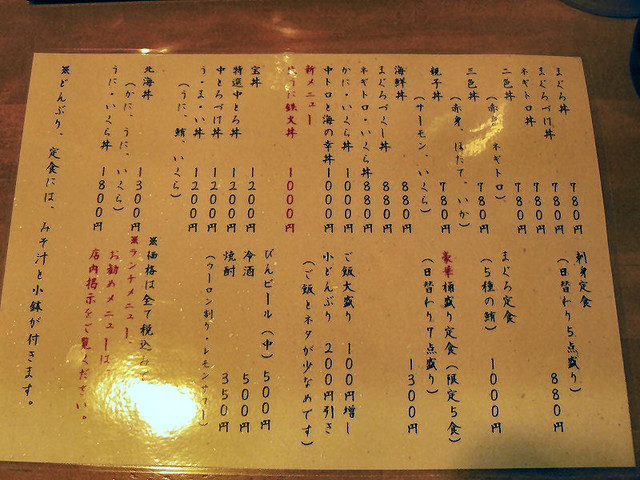 まぐろ丼 780円
まぐろづけ丼 780円
ネギトロ丼 780円
二色丼 780円
(赤身、ネギトロ)
三色丼 780円
(赤身、ほたて、いか)
親子丼 780円
(サーモン、いくら)
海鮮丼 880円
まぐろづくし丼 880円
ネギトロ・いくら丼 880円
かに・いくら丼 1000円
中トロと海の幸丼 1000円
新メニュー
鉄火丼 1000円
宝丼 1200円
特選中とろ丼 1200円
中とろづけ丼 1200円
う・ま・い丼 1200円
(うに、鮪、いくら)
北海丼 1300円
(かに、うに、いくら)
うに・いくら丼 1800円
※どんぶり、定食には、みそ汁と小鉢が付きます。
刺身定食 880円
(日替わり5点盛り)
まぐろ定食 1000円
(5種の鮪)
豪華桶盛り定食(限定5食)
(日替わり7点盛り) 1300円
ご飯大盛り 100円増し
小どんぶり 200円引き
(ご飯とネタが少なめです)
びんビール(中) 500円
冷酒 500円
焼酎 350円
(ウーロン割り・レモンサワー)
※価格は全て税込み
※ランチメニュー、
お勧めメニューは、
店内掲示をご覧ください。